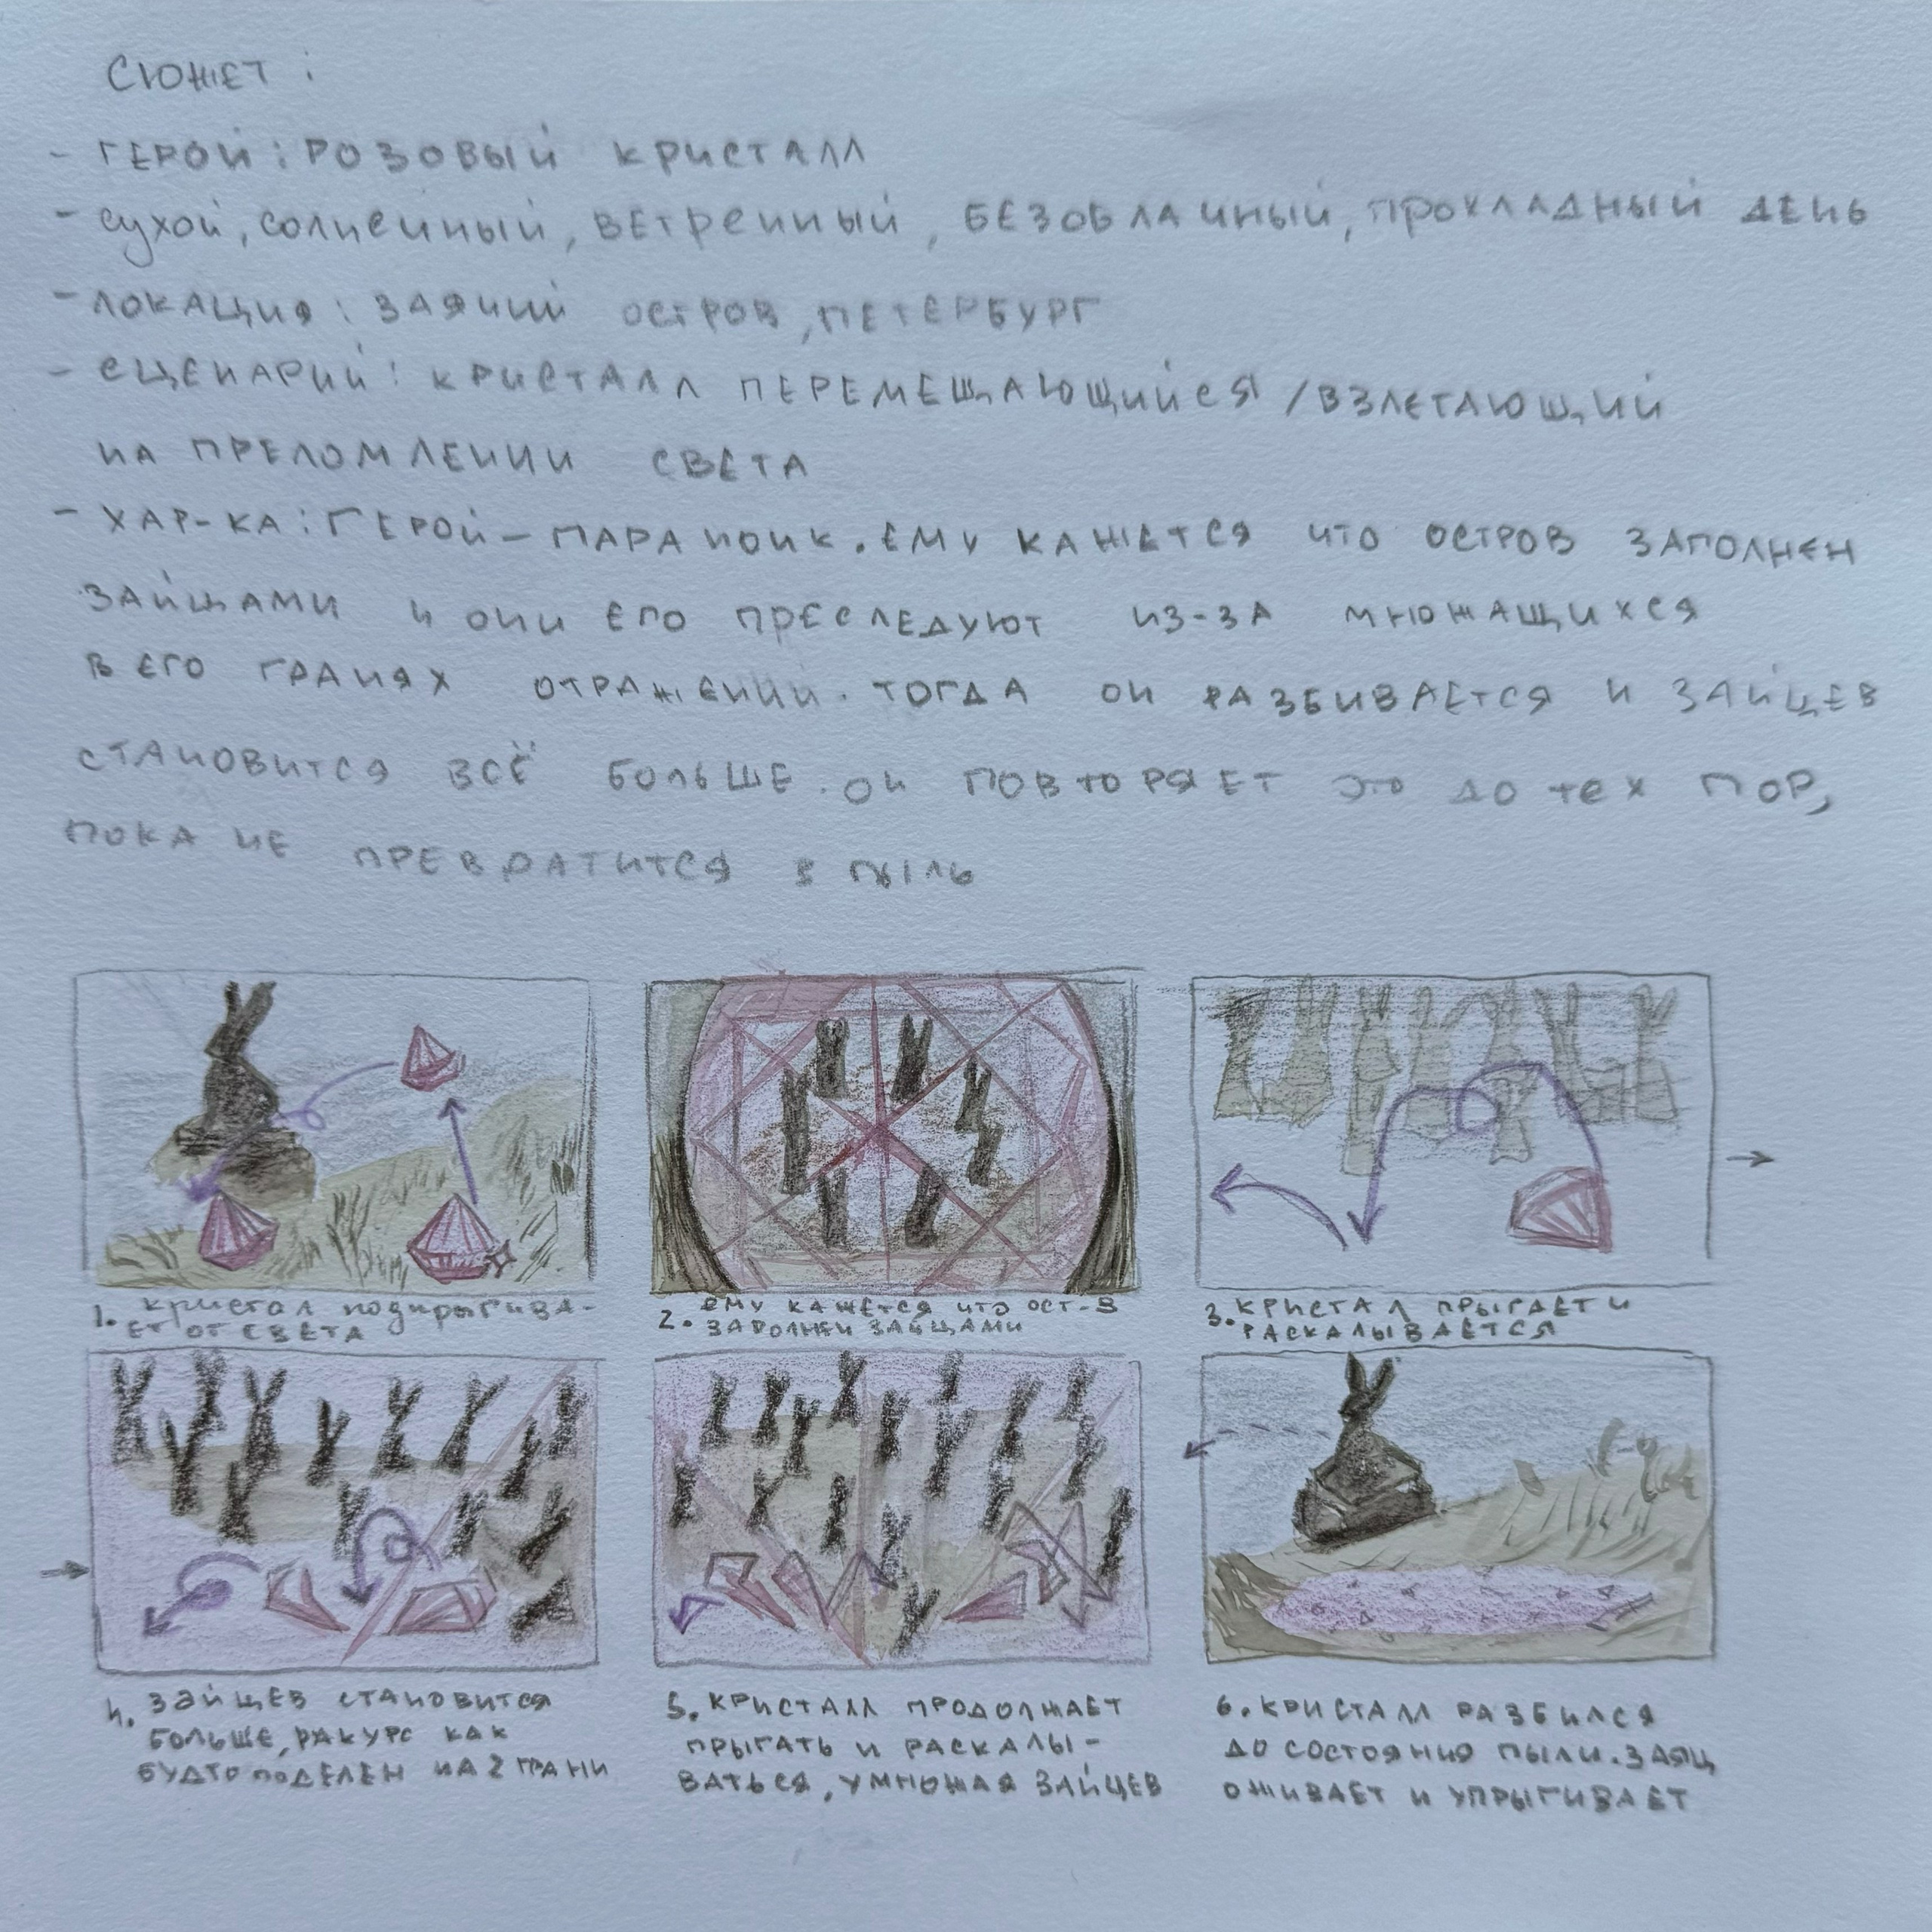 СЮЖЕТ:
- ГЕРОЙ: РОЗОВЫЙ КРИСТАЛЛ
- СУХОЙ, СОЛНЕЧНЫЙ, ВЕТРЕННЫЙ, БЕЗОБЛАЧНЫЙ, ПРОХЛАДНЫЙ ДЕНЬ
- ЛОКАЦИЯ: ЗАЯЧИЙ ОСТРОВ, ПЕТЕРБУРГ
- СЦЕНАРИЙ: КРИСТАЛЛ ПЕРЕМЕЩАЮЩИЙСЯ / ВЗЛЕТАЮЩИЙ
НА ПРЕЛОМЛЕНИИ СВЕТА
- ХАР-КА: ГЕРОЙ - ПАРАНОИК. ЕМУ КАЖЕТСЯ ЧТО ОСТРОВ ЗАПОЛНЕН
ЗАЙЦАМИ И ОНИ ЕГО ПРЕСЛЕДУЮТ ИЗ-ЗА МНОЖАЩИХСЯ
В ЕГО ГРАНЯХ ОТРАЖЕНИЙ. ТОГДА ОН РАЗБИВАЕТСЯ И ЗАЙЦЕВ
СТАНОВИТСЯ ВСЁ БОЛЬШЕ. ОН ПОВТОРЯЕТ ЭТО ДО ТЕХ ПОР,
ПОКА НЕ ПРЕВРАТИТСЯ В ПЫЛЬ
1. КРИСТАЛ ПОДПРЫГИВА-
ЕТ ОТ СВЕТА
2. ЕМУ КАЖЕТСЯ ЧТО ОСТ-В
ЗАПОЛНЕН ЗАЙЦАМИ
3. КРИСТАЛ ПРЫГАЕТ И
РАСКАЛЫВАЕТСЯ
4. ЗАЙЦЕВ СТАНОВИТСЯ
БОЛЬШЕ, РАКУРС КАК
БУДТО ПОДЕЛЕН НА 2 ГРАНИ
5. КРИСТАЛЛ ПРОДОЛЖАЕТ
ПРЫГАТЬ И РАСКАЛЫ-
ВАТЬСЯ, УМНОЖАЯ ЗАЙЦЕВ
6. КРИСТАЛЛ РАЗБИЛСЯ
ДО СОСТОЯНИЯ ПЫЛИ. ЗАЯЦ
ОЖИВАЕТ И УПРЫГИВАЕТ